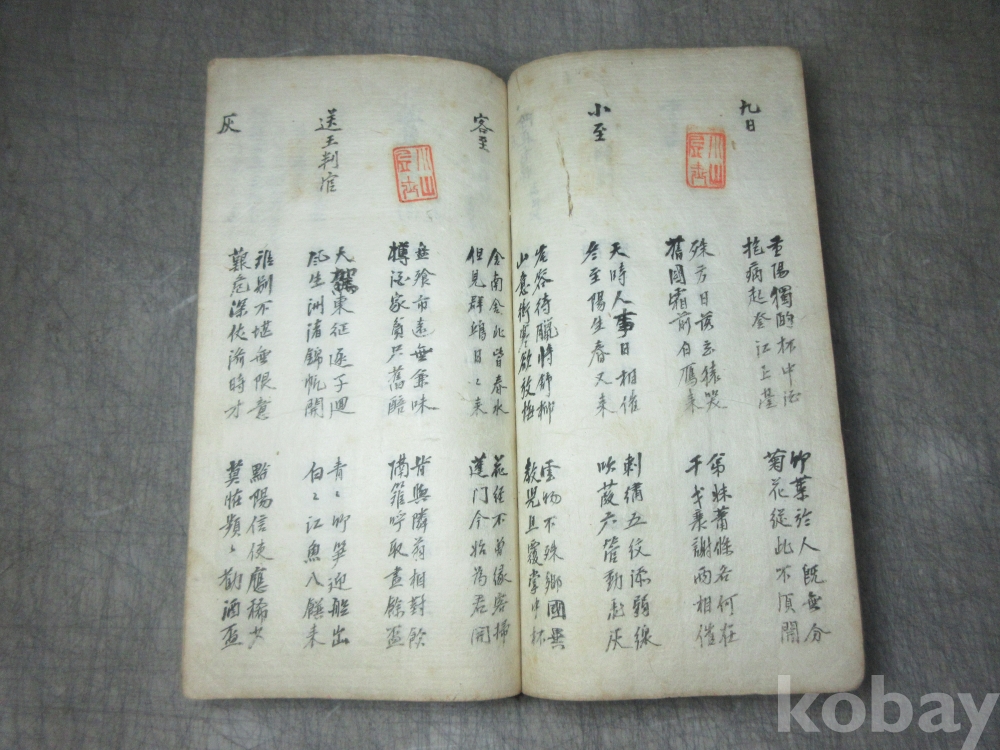 九日
重陽獨酌杯中酒
抱病起登江上臺
竹葉於人既無分
菊花從此不須開
殊方日落玄猿哭
舊國霜前白鴈來
弟妹蕭條各何在
干戈衰謝兩相催
小至
天時人事日相催
冬至陽生春又來
刺繡五紋添弱線
吹葭六管動飛灰
岸容待臘將舒柳
山意衝寒欲放梅
雲物不殊鄉國異
教兒且覆掌中杯
客至
舍南舍北皆春水
但見群鷗日〻來
花徑不曾緣客掃
蓬門今始為君開
盤飱市遠無兼味
樽酒家貧只舊醅
肯與隣翁相對飲
隔籬呼取盡餘盃
送王判官
大駕東征逐子迴
風生洲渚錦帆開
青〻竹笋迎船出
白〻江魚入饌來
離別不堪無限意
艱危深仗濟時才
黔陽信使應稀少
莫怪頻〻勸酒盃
灰
kobay